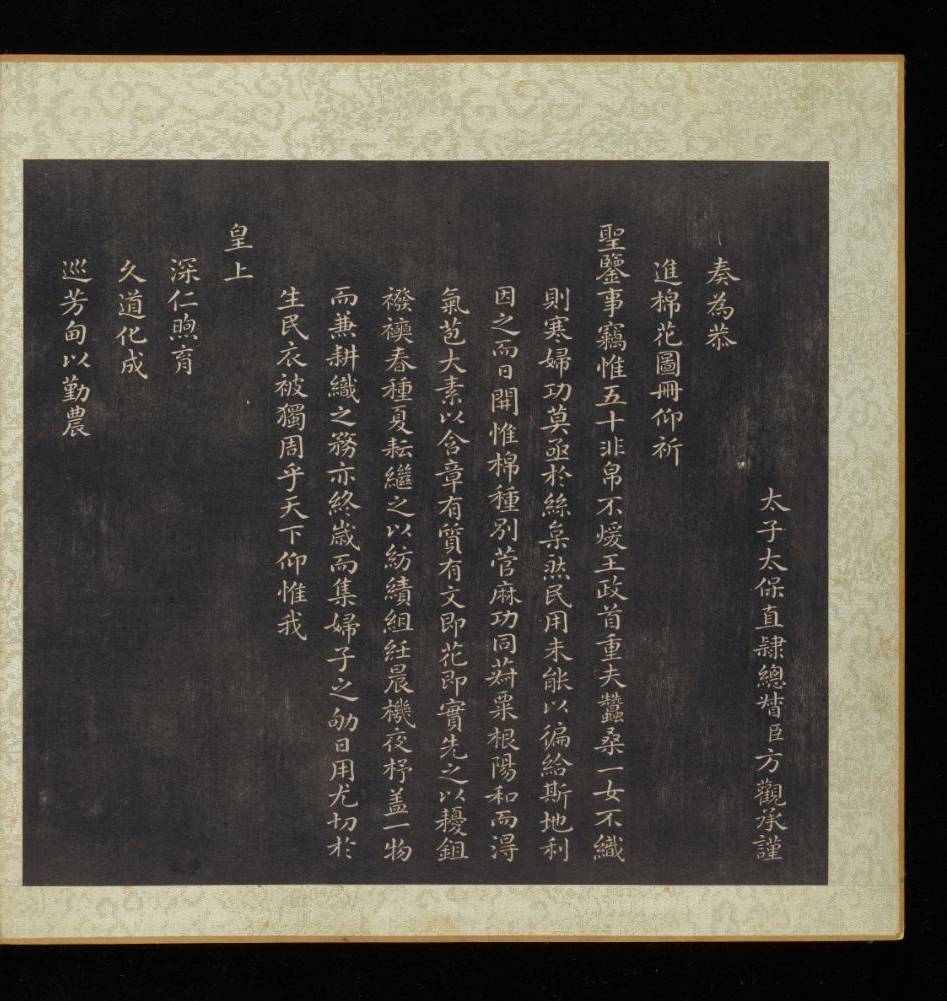 太子太保直隸總督臣方觀承謹
奏為恭
進棉花圖冊仰祈
聖鑒事竊惟五十非帛不煖王政首重夫蠶桑一女不織
則寒婦功莫亟於絲枲然民用未能以徧給斯地利
因之而日開惟棉種別菅麻功同菽粟根陽和而得
氣苞大素以含章有質有文即花即實先之以耰鉏
襏襫春種夏耘繼之以紡績組絍晨機夜杼蓋一物
而兼耕織之務亦終歲而集婦子之劬日用尤切於
生民衣被獨周乎天下仰惟我
皇上
深仁煦育
久道化成
巡芳甸以勤農